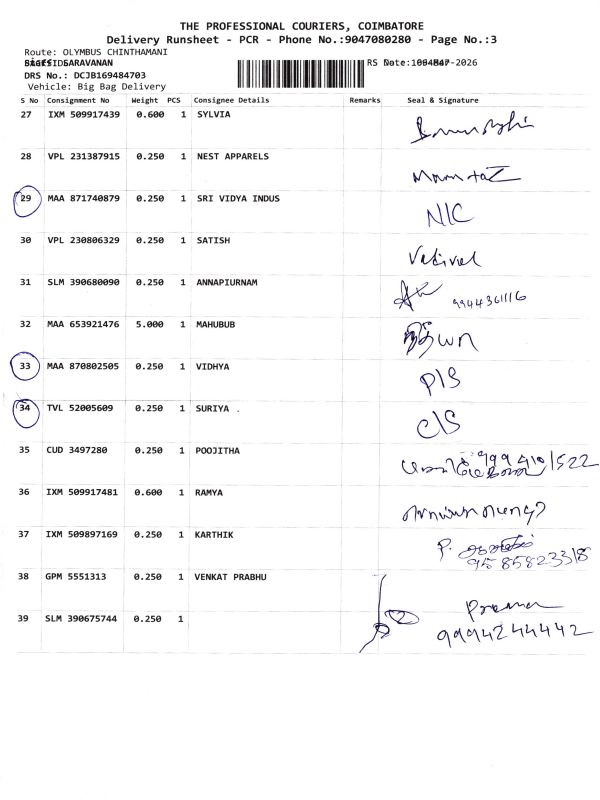 THE PROFESSIONAL COURIERS, COIMBATORE
Delivery Runsheet - PCR - Phone No.:9047080280 - Page No.:3
Route: OLYMBUS CHINTHAMANI
SARAVANAN
RS Date: -2026
DRS No.: DCJB169484703
Vehicle: Big Bag Delivery
S No Consignment No Weight PCS Consignee Details Remarks Seal & Signature
27 IXM 509917439 0.600 1 SYLVIA
28 VPL 231387915 0.250 1 NEST APPARELS Mamtaz
29 MAA 871740879 0.250 1 SRI VIDYA INDUS N/C
30 VPL 230806329 0.250 1 SATISH Vetivel
31 SLM 390680090 0.250 1 ANNAPIURNAM 9944361116
32 MAA 653921476 5.000 1 MAHUBUB
33 MAA 870802505 0.250 1 VIDHYA P/S
34 TVL 52005609 0.250 1 SURIYA . C/S
35 CUD 3497280 0.250 1 POOJITHA
36 IXM 509917481 0.600 1 RAMYA
37 IXM 509897169 0.250 1 KARTHIK P. 9585823318
38 GPM 5551313 0.250 1 VENKAT PRABHU
39 SLM 390675744 0.250 1 2 Prema
9994244442